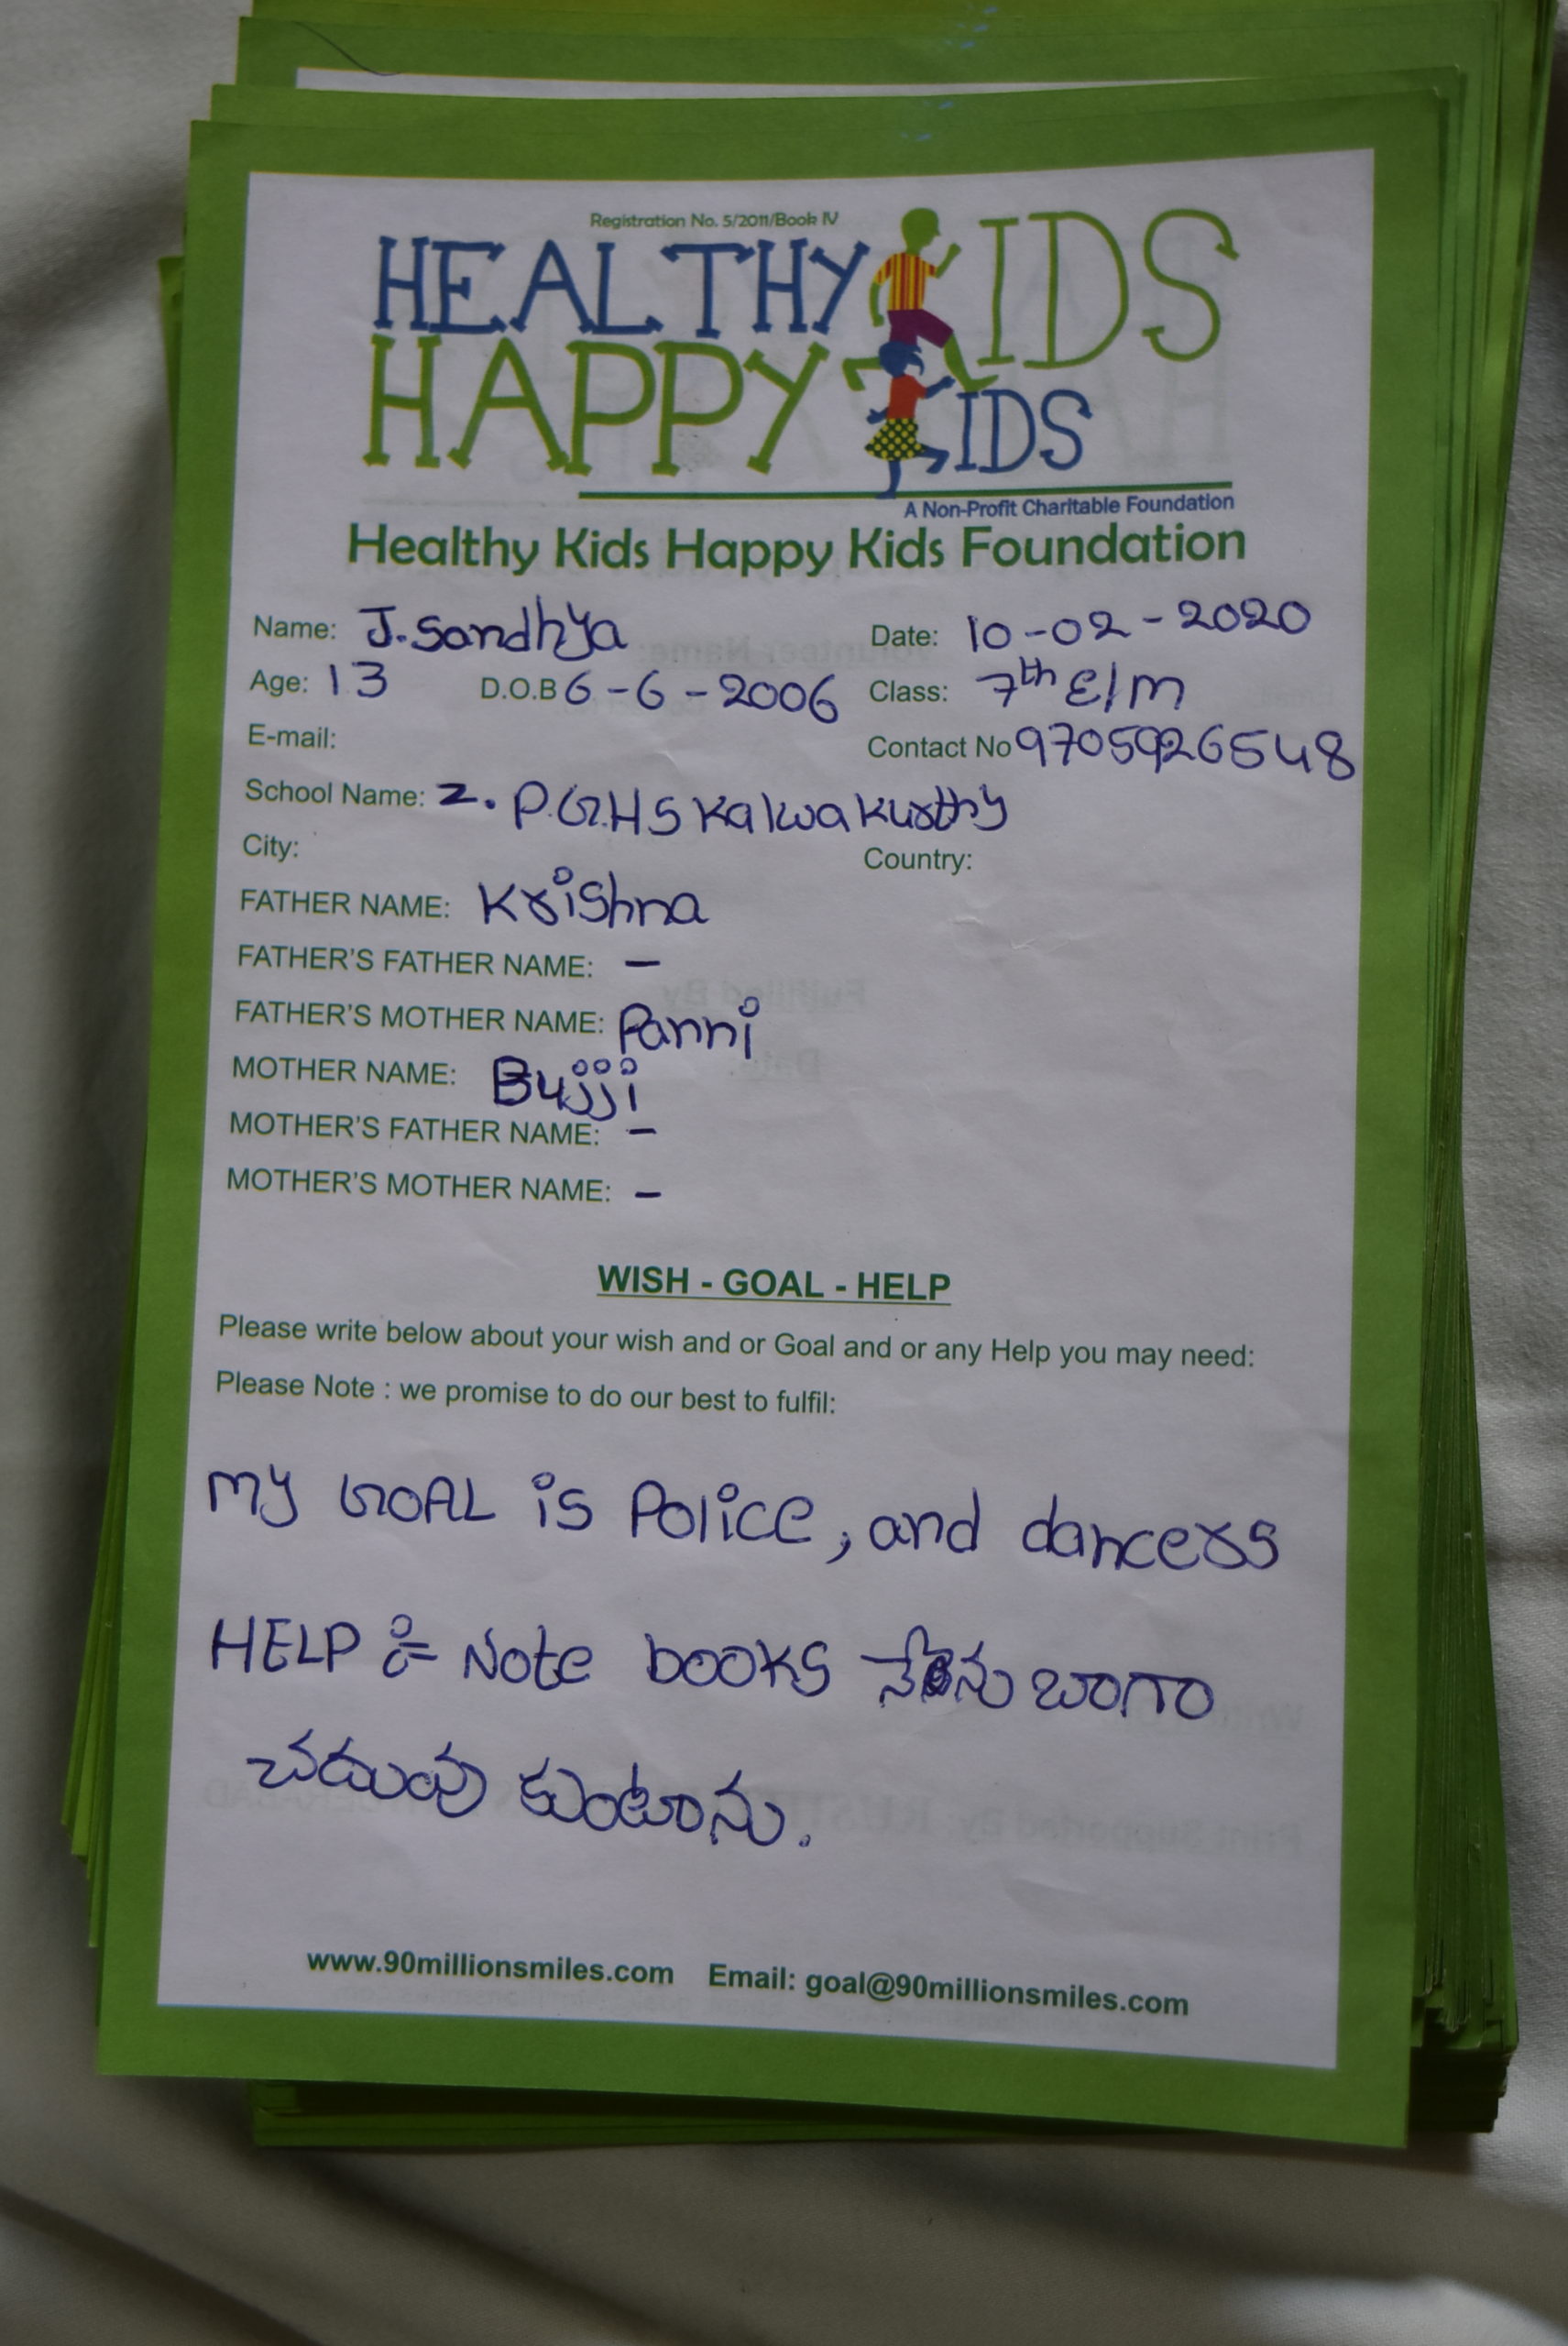 Registration No. 5/2011/Book IV
HEALTHY KIDS
HAPPY KIDS
A Non-Profit Charitable Foundation
Healthy Kids Happy Kids Foundation
Name: J.Sandhya Date: 10-02-2020
Age: 13 D.O.B 6-6-2006 Class: 7th E/M
E-mail: Contact No 9705926548
School Name: Z.P.G.H.S Kalwakurthy
City: Country:
FATHER NAME: Krishna
FATHER'S FATHER NAME: –
FATHER'S MOTHER NAME: Panni
MOTHER NAME: Bujji
MOTHER'S FATHER NAME: –
MOTHER'S MOTHER NAME: –
WISH - GOAL - HELP
Please write below about your wish and or Goal and or any Help you may need:
Please Note : we promise to do our best to fulfil:
My GOAL is Police, and dancers
HELP :- Note books నేను బాగా
చదువు కుంటాను.
www.90millionsmiles.com Email: goal@90millionsmiles.com